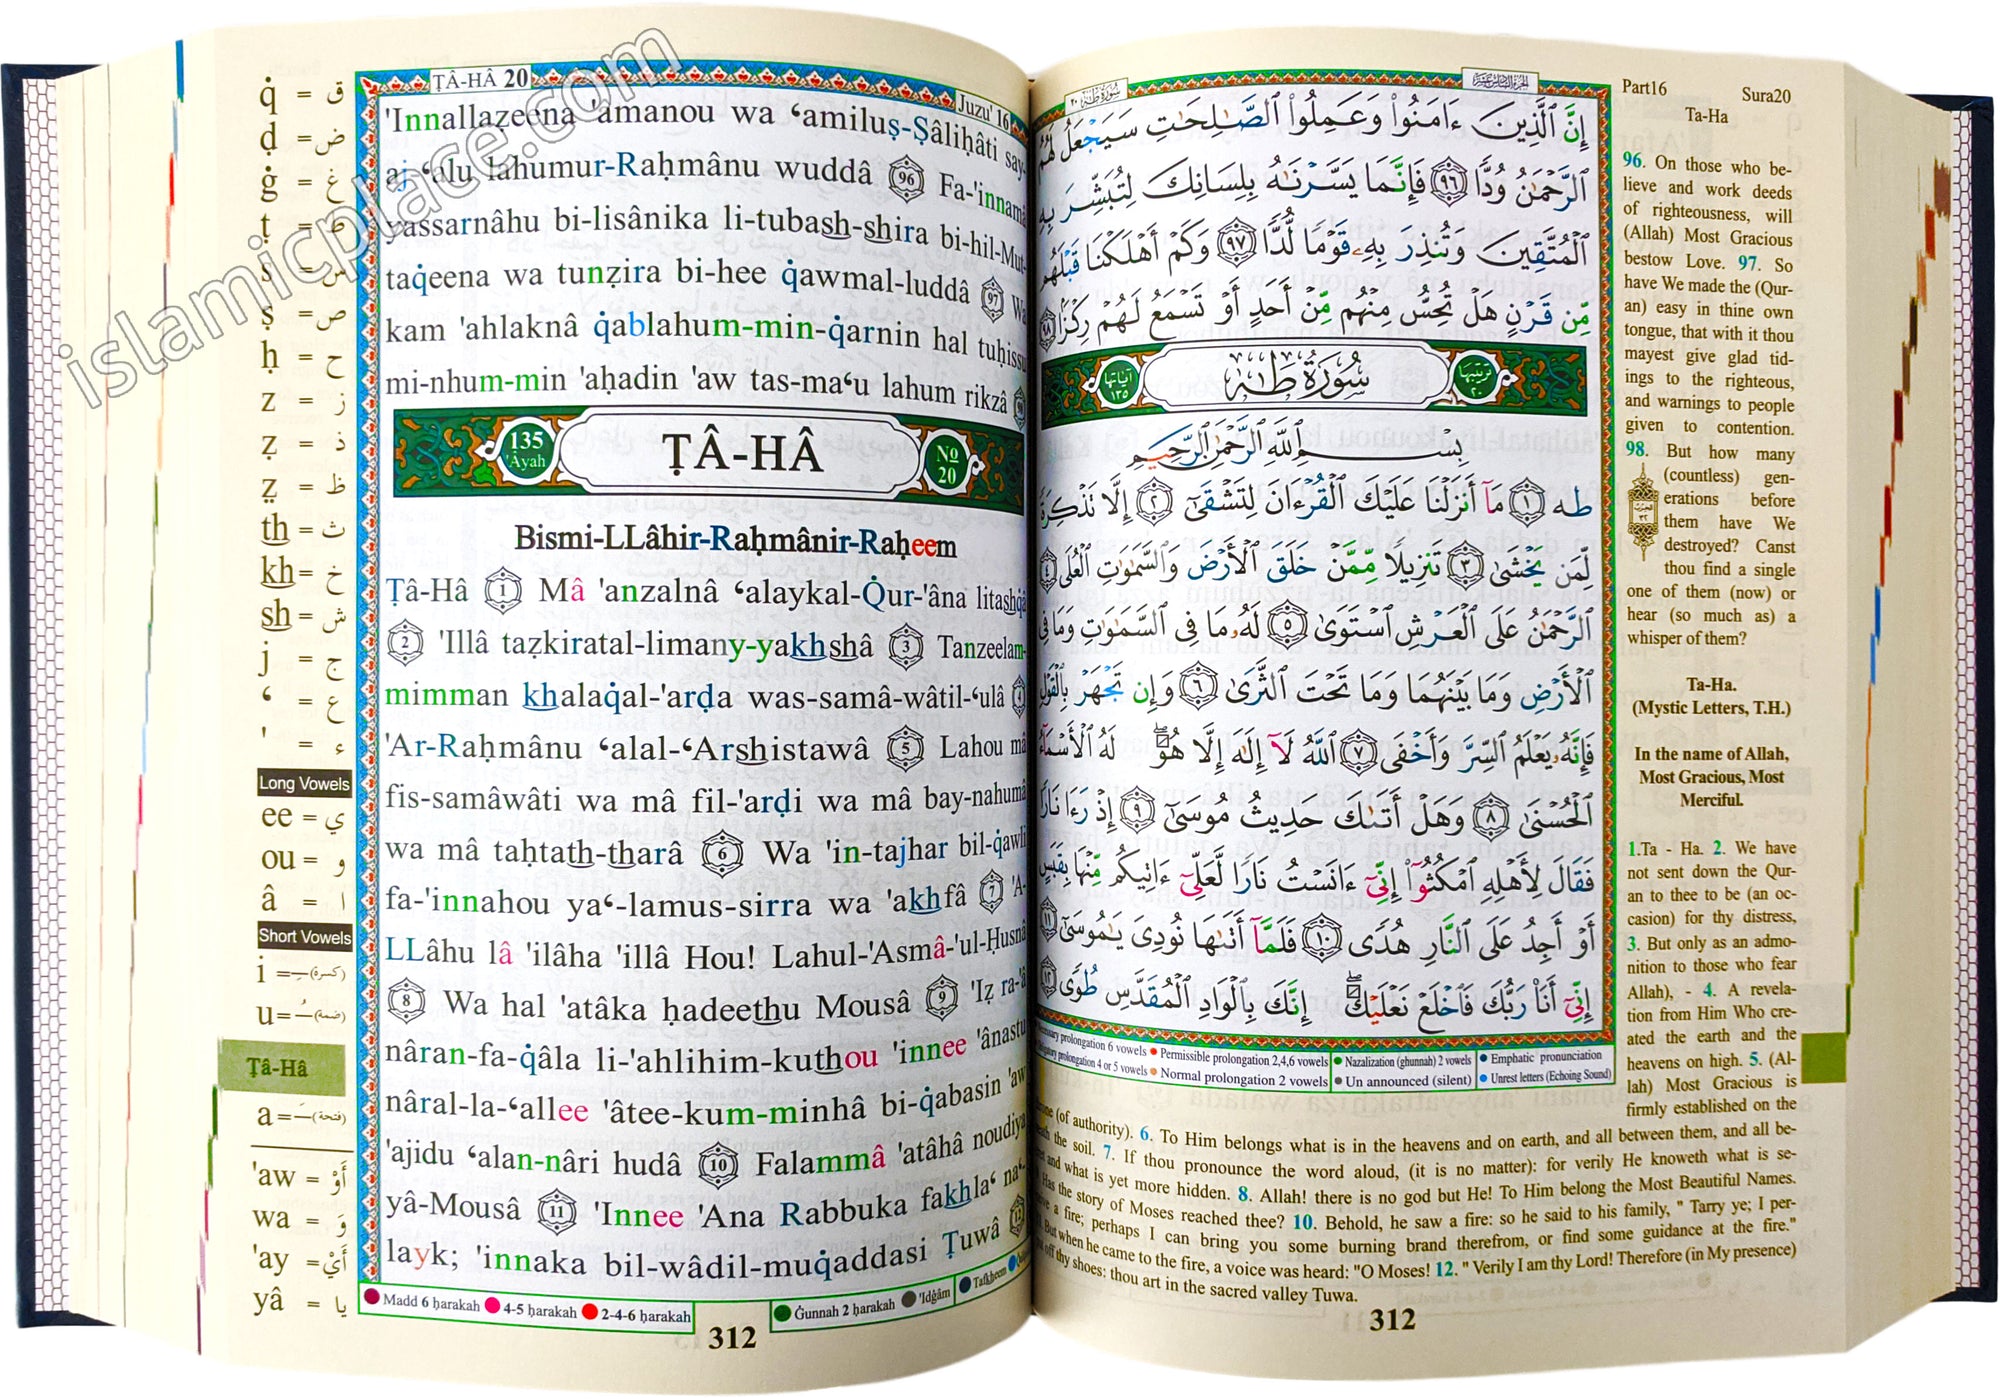 islamicplace.com
q̇ = ق
ḍ = ض
ġ = غ
ṭ = ط
s = س
ṣ = ص
ḥ = ح
z = ز
ẓ = ذ
ẓ̣ = ظ
th = ث
kh = خ
sh = ش
j = ج
‘ = ع
' = ء
Long Vowels
ee = ي
ou = و
â = ا
Short Vowels
i = (كسرة)
u = (ضمة)
Ṭâ-Hâ
a = (فتحة)
'aw = أَوْ
wa = وَ
'ay = أَيْ
yâ = يا
ṬÂ-HÂ 20
Juzu' 16
'Innallaẓeena 'âmanou wa ‘amiluṣ-Ṣâliḥâti say-
aj ‘alu lahumur-Raḥmânu wuddâ 96 Fa-'innamâ
yassarnâhu bi-lisânika li-tubash-shira bi-hil-Mut-
taqeena wa tunẓira bi-hee q̇awmal-luddâ 97 Wa
kam 'ahlaknâ q̇ablahum-min-q̇arnin hal tuḥissu
mi-nhum-min 'aḥadin 'aw tas-ma‘u lahum rikzâ 98
135 'Âyah
ṬÂ-HÂ
No 20
Bismi-LLâhir-Raḥmânir-Raḥeem
Ṭâ-Hâ 1 Mâ 'anzalnâ ‘alaykal-Q̇ur-'âna litashq̇â
2 'Illâ taẓkiratal-limany-yakhshâ 3 Tanzeelam-
mimman khalaq̇al-'arḍa was-samâ-wâtil-‘ulâ 4
'Ar-Raḥmânu ‘alal-‘Arshistawâ 5 Lahou mâ
fis-samâwâti wa mâ fil-'arḍi wa mâ bay-nahumâ
wa mâ taḥtath-tharâ 6 Wa 'in-tajhar bil-q̇awli
fa-'innahou ya‘-lamus-sirra wa 'akhfâ 7 'A-
LLâhu lâ 'ilâha 'illâ Hou! Lahul-'Asmâ-'ul-Ḥusnâ
8 Wa hal 'atâka ḥadeethu Mousâ 9 'Iẓ ra-'â
nâran-fa-q̇âla li-'ahlihim-kuthou 'innee 'ânastu
nâral-la-‘allee 'âtee-kum-minhâ bi-q̇abasin 'aw
'ajidu ‘alan-nâri hudâ 10 Falammâ 'atâhâ noudiya
yâ-Mousâ 11 'Innee 'Ana Rabbuka fakhla‘ na‘-
layk; 'innaka bil-wâdil-muq̇addasi Ṭuwâ 12
Madd 6 ḥarakah 4-5 ḥarakah 2-4-6 ḥarakah
Ġunnah 2 ḥarakah 'Idġâm
Tafkheem
312
سُورَةُ طه ٢٠
الجزء السادس عشر
إِنَّ ٱلَّذِينَ ءَامَنُوا۟ وَعَمِلُوا۟ ٱلصَّـٰلِحَـٰتِ سَيَجْعَلُ لَهُمُ
ٱلرَّحْمَـٰنُ وُدًّا ٩٦ فَإِنَّمَا يَسَّرْنَـٰهُ بِلِسَانِكَ لِتُبَشِّرَ بِهِ
ٱلْمُتَّقِينَ وَتُنذِرَ بِهِۦ قَوْمًا لُّدًّا ٩٧ وَكَمْ أَهْلَكْنَا قَبْلَهُم
مِّن قَرْنٍ هَلْ تُحِسُّ مِنْهُم مِّنْ أَحَدٍ أَوْ تَسْمَعُ لَهُمْ رِكْزًا ٩٨
آياتها ١٣٥
سُورَةُ طه
ترتيبها ٢٠
بِسْمِ ٱللَّهِ ٱلرَّحْمَـٰنِ ٱلرَّحِيمِ
طه ١ مَآ أَنزَلْنَا عَلَيْكَ ٱلْقُرْءَانَ لِتَشْقَىٰٓ ٢ إِلَّا تَذْكِرَةً
لِّمَن يَخْشَىٰ ٣ تَنزِيلًا مِّمَّنْ خَلَقَ ٱلْأَرْضَ وَٱلسَّمَـٰوَٰتِ ٱلْعُلَى ٤
ٱلرَّحْمَـٰنُ عَلَى ٱلْعَرْشِ ٱسْتَوَىٰ ٥ لَهُۥ مَا فِى ٱلسَّمَـٰوَٰتِ وَمَا فِى
ٱلْأَرْضِ وَمَا بَيْنَهُمَا وَمَا تَحْتَ ٱلثَّرَىٰ ٦ وَإِن تَجْهَرْ بِٱلْقَوْلِ
فَإِنَّهُۥ يَعْلَمُ ٱلسِّرَّ وَأَخْفَى ٧ ٱللَّهُ لَآ إِلَـٰهَ إِلَّا هُوَ ۖ لَهُ ٱلْأَسْمَآءُ
ٱلْحُسْنَىٰ ٨ وَهَلْ أَتَىٰكَ حَدِيثُ مُوسَىٰٓ ٩ إِذْ رَءَا نَارًا
فَقَالَ لِأَهْلِهِ ٱمْكُثُوٓا۟ إِنِّىٓ ءَانَسْتُ نَارًا لَّعَلِّىٓ ءَاتِيكُم مِّنْهَا بِقَبَسٍ
أَوْ أَجِدُ عَلَى ٱلنَّارِ هُدًى ١٠ فَلَمَّآ أَتَىٰهَا نُودِىَ يَـٰمُوسَىٰٓ ١١
إِنِّىٓ أَنَا۠ رَبُّكَ فَٱخْلَعْ نَعْلَيْكَ ۖ إِنَّكَ بِٱلْوَادِ ٱلْمُقَدَّسِ طُوًى ١٢
prolongation 6 vowels Permissible prolongation 2,4,6 vowels Nazalization (ghunnah) 2 vowels Emphatic pronunciation
prolongation 4 or 5 vowels Normal prolongation 2 vowels Un announced (silent) Unrest letters (Echoing Sound)
Part16 Sura20
Ta-Ha
96. On those who be-
lieve and work deeds
of righteousness, will
(Allah) Most Gracious
bestow Love. 97. So
have We made the (Qur-
an) easy in thine own
tongue, that with it thou
mayest give glad tid-
ings to the righteous,
and warnings to people
given to contention.
98. But how many
(countless) gen-
erations before
them have We
destroyed? Canst
thou find a single
one of them (now) or
hear (so much as) a
whisper of them?
Ta-Ha.
(Mystic Letters, T.H.)
In the name of Allah,
Most Gracious, Most
Merciful.
1.Ta - Ha. 2. We have
not sent down the Qur-
an to thee to be (an oc-
casion) for thy distress,
3. But only as an admo-
nition to those who fear
Allah), - 4. A revela-
tion from Him Who cre-
ated the earth and the
heavens on high. 5. (Al-
lah) Most Gracious is
firmly established on the
(of authority). 6. To Him belongs what is in the heavens and on earth, and all between them, and all be-
the soil. 7. If thou pronounce the word aloud, (it is no matter): for verily He knoweth what is se-
and what is yet more hidden. 8. Allah! there is no god but He! To Him belong the Most Beautiful Names.
Has the story of Moses reached thee? 10. Behold, he saw a fire: so he said to his family, " Tarry ye; I per-
a fire; perhaps I can bring you some burning brand therefrom, or find some guidance at the fire."
But when he came to the fire, a voice was heard: "O Moses! 12. " Verily I am thy Lord! Therefore (in My presence)
off thy shoes: thou art in the sacred valley Tuwa.
312